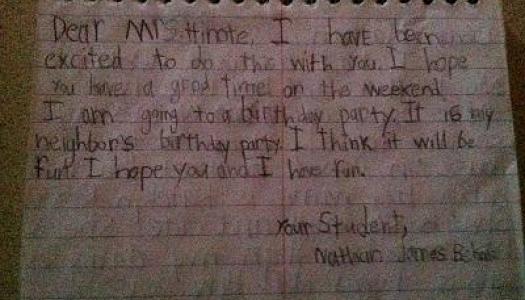 Dear Mrs. Hinote, I have been
excited to do this with you. I hope
you have a good time on the weekend
I am going to a birthday party. It is my
neighbor's birthday party. I think it will be
fun. I hope you and I have fun.
Your Student,
Nathan James